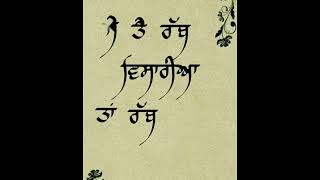 ਜੇ ਤੈ ਰੱਬ
ਵਿਸਾਰੀਆ
ਤਾਂ ਰੱਬ